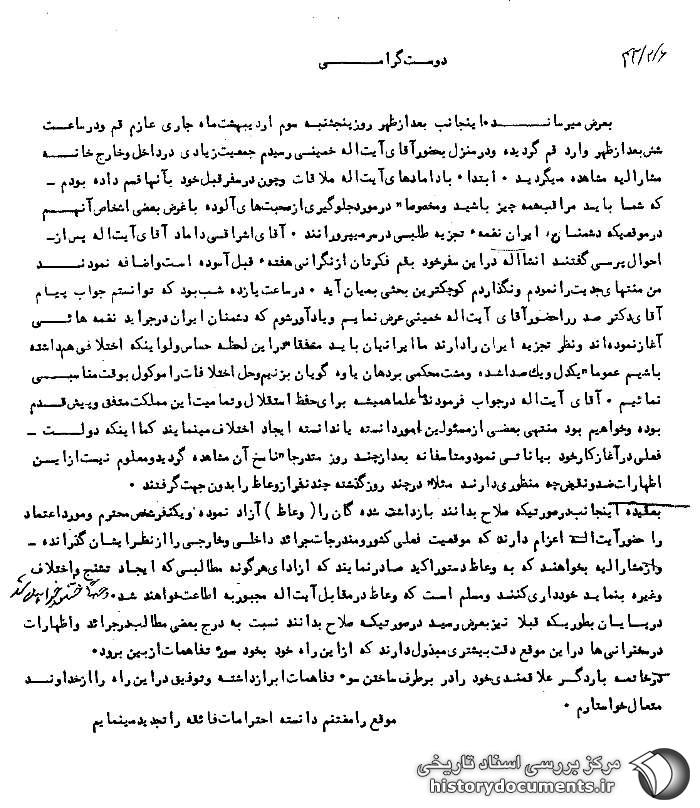 ۴۳/۲/۶
دوست گرامــــــی
بعرض میرسانــــد ۰ اینجانب بعد از ظهر روز پنجشنبه سوم اردیبهشت ماه جاری عازم قم و در ساعت
شش بعد از ظهر وارد قم گردیده و در منزل بحضور آقای آیت اله خمینی رسیدم جمعیت زیادی در داخل و خارج خانــه
مشارالیه مشاهده میگردید ۰ ابتدا ۰ با دامادهای آیت اله ملاقات و چون در سفر قبل خود بآنها قسم داده بودم ـ
که شما باید مراقب همه چیز باشید و مخصوصا" در مورد جلوگیری از صحبت های آلوده با غرض بعضی اشخاص آنهــم
در موقعیکه دشمنان ایران نغمه ۰ تجزیه طلبی در سر میپرورانند ۰ آقای اشراقی داماد آقای آیت اله پس از ـ
احوال پرسی گفتند انشااله در این سفر خود بقم فکرتان از نگرانی هفته ۰ قبل آسوده است و اضافه نمودنــد
من منتهای جدیت را نمودم و نگذاردم کوچکترین بحثی بمیان آید ۰ در ساعت یازده شب بود که توانستم جواب پیـام
آقای دکتر صدر را حضور آقای آیت اله خمینی عرض نمایم و یادآور شوم که دشمنان ایران در جراید نغمه هائــی
آغاز نموده اند و نظر تجزیه ایران را دارند ما ایرانیان باید متفقا" در این لحظه حساس ولو اینکه اختلافی هم داشته
باشیم عموما" یکدل و یک صدا شده و مشت محکمی بر دهان یاوه گویان بزنیم و حل اختلافات را موکول بوقت مناسبــی
نمائیم ۰ آقای آیت اله در جواب فرمودند ما علما همیشه برای حفظ استقلال و تمامیت این مملکت متفق و پیش قــدم
بوده و خواهیم بود منتهی بعضی از مسئولین امور دانسته یا ندانسته ایجاد اختلاف مینمایند کما اینکه دولــت ـ
فعلی در آغاز کار خود بیاناتی نمود و متاسفانه بعد از چند روز متدرجا" ناسخ آن مشاهده گردید و معلوم نیست از ایــن
اظهارات ضد و نقیض چه منظوری دارند مثلا" در چند روز گذشته چند نفر از وعاظ را بدون جهت گرفتند ۰
بعقیده اینجانب در صورتیکه صلاح بدانند بازداشت شده گان را ( وعاظ ) آزاد نموده و یکنفر شخص محترم و مورد اعتماد
را حضور آیت اله اعزام دارند که موقعیت فعلی کشور و مندرجات جرائد داخلی و خارجی را از نظر ایشان گذرانده ـ
و از مشارالیه بخواهند که به وعاظ دستور اکید صادر نمایند که از ادای هرگونه مطالبی که ایجاد تشنج و اختلاف
وغیره بنماید خودداری کنند و مسلم است که وعاظ در مقابل آیت اله مجبور به اطاعت خواهند شد ۰
در پایان بطوریکه قبلا نیز بعرض رسید در صورتیکه صلاح بدانند نسبت به درج بعضی مطالب در جرائد و اظهارات
در سخنرانی ها در این موقع دقت بیشتری مبذول دارند که از این راه خود بخود سوء تفاهمات از بین برود ۰
در خاتمــه بار دگر علاقمندی خود را در برطرف ساختن سوء تفاهمات ابراز داشته و توفیق در این راه را از خداونــد
متعال خواستارم ۰
موقع را مغتنم دانسته احترامات فائقه را تجدید مینمایم
مرکز بررسی اسناد تاریخی
historydocuments.ir